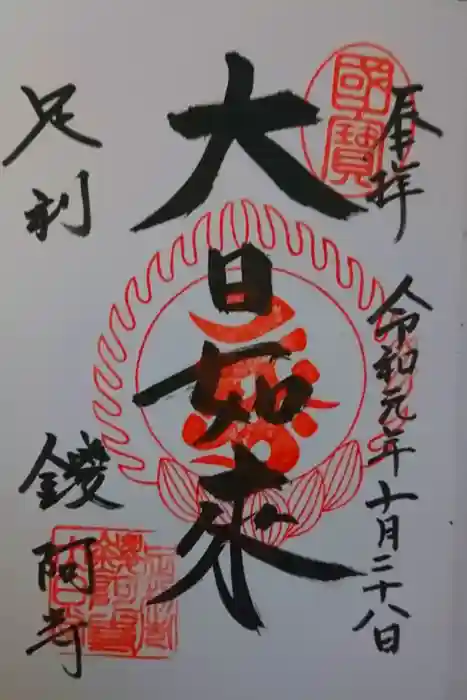 國寶
奉拝
令和元年十月二十八日
大日如来
足利
鑁阿寺